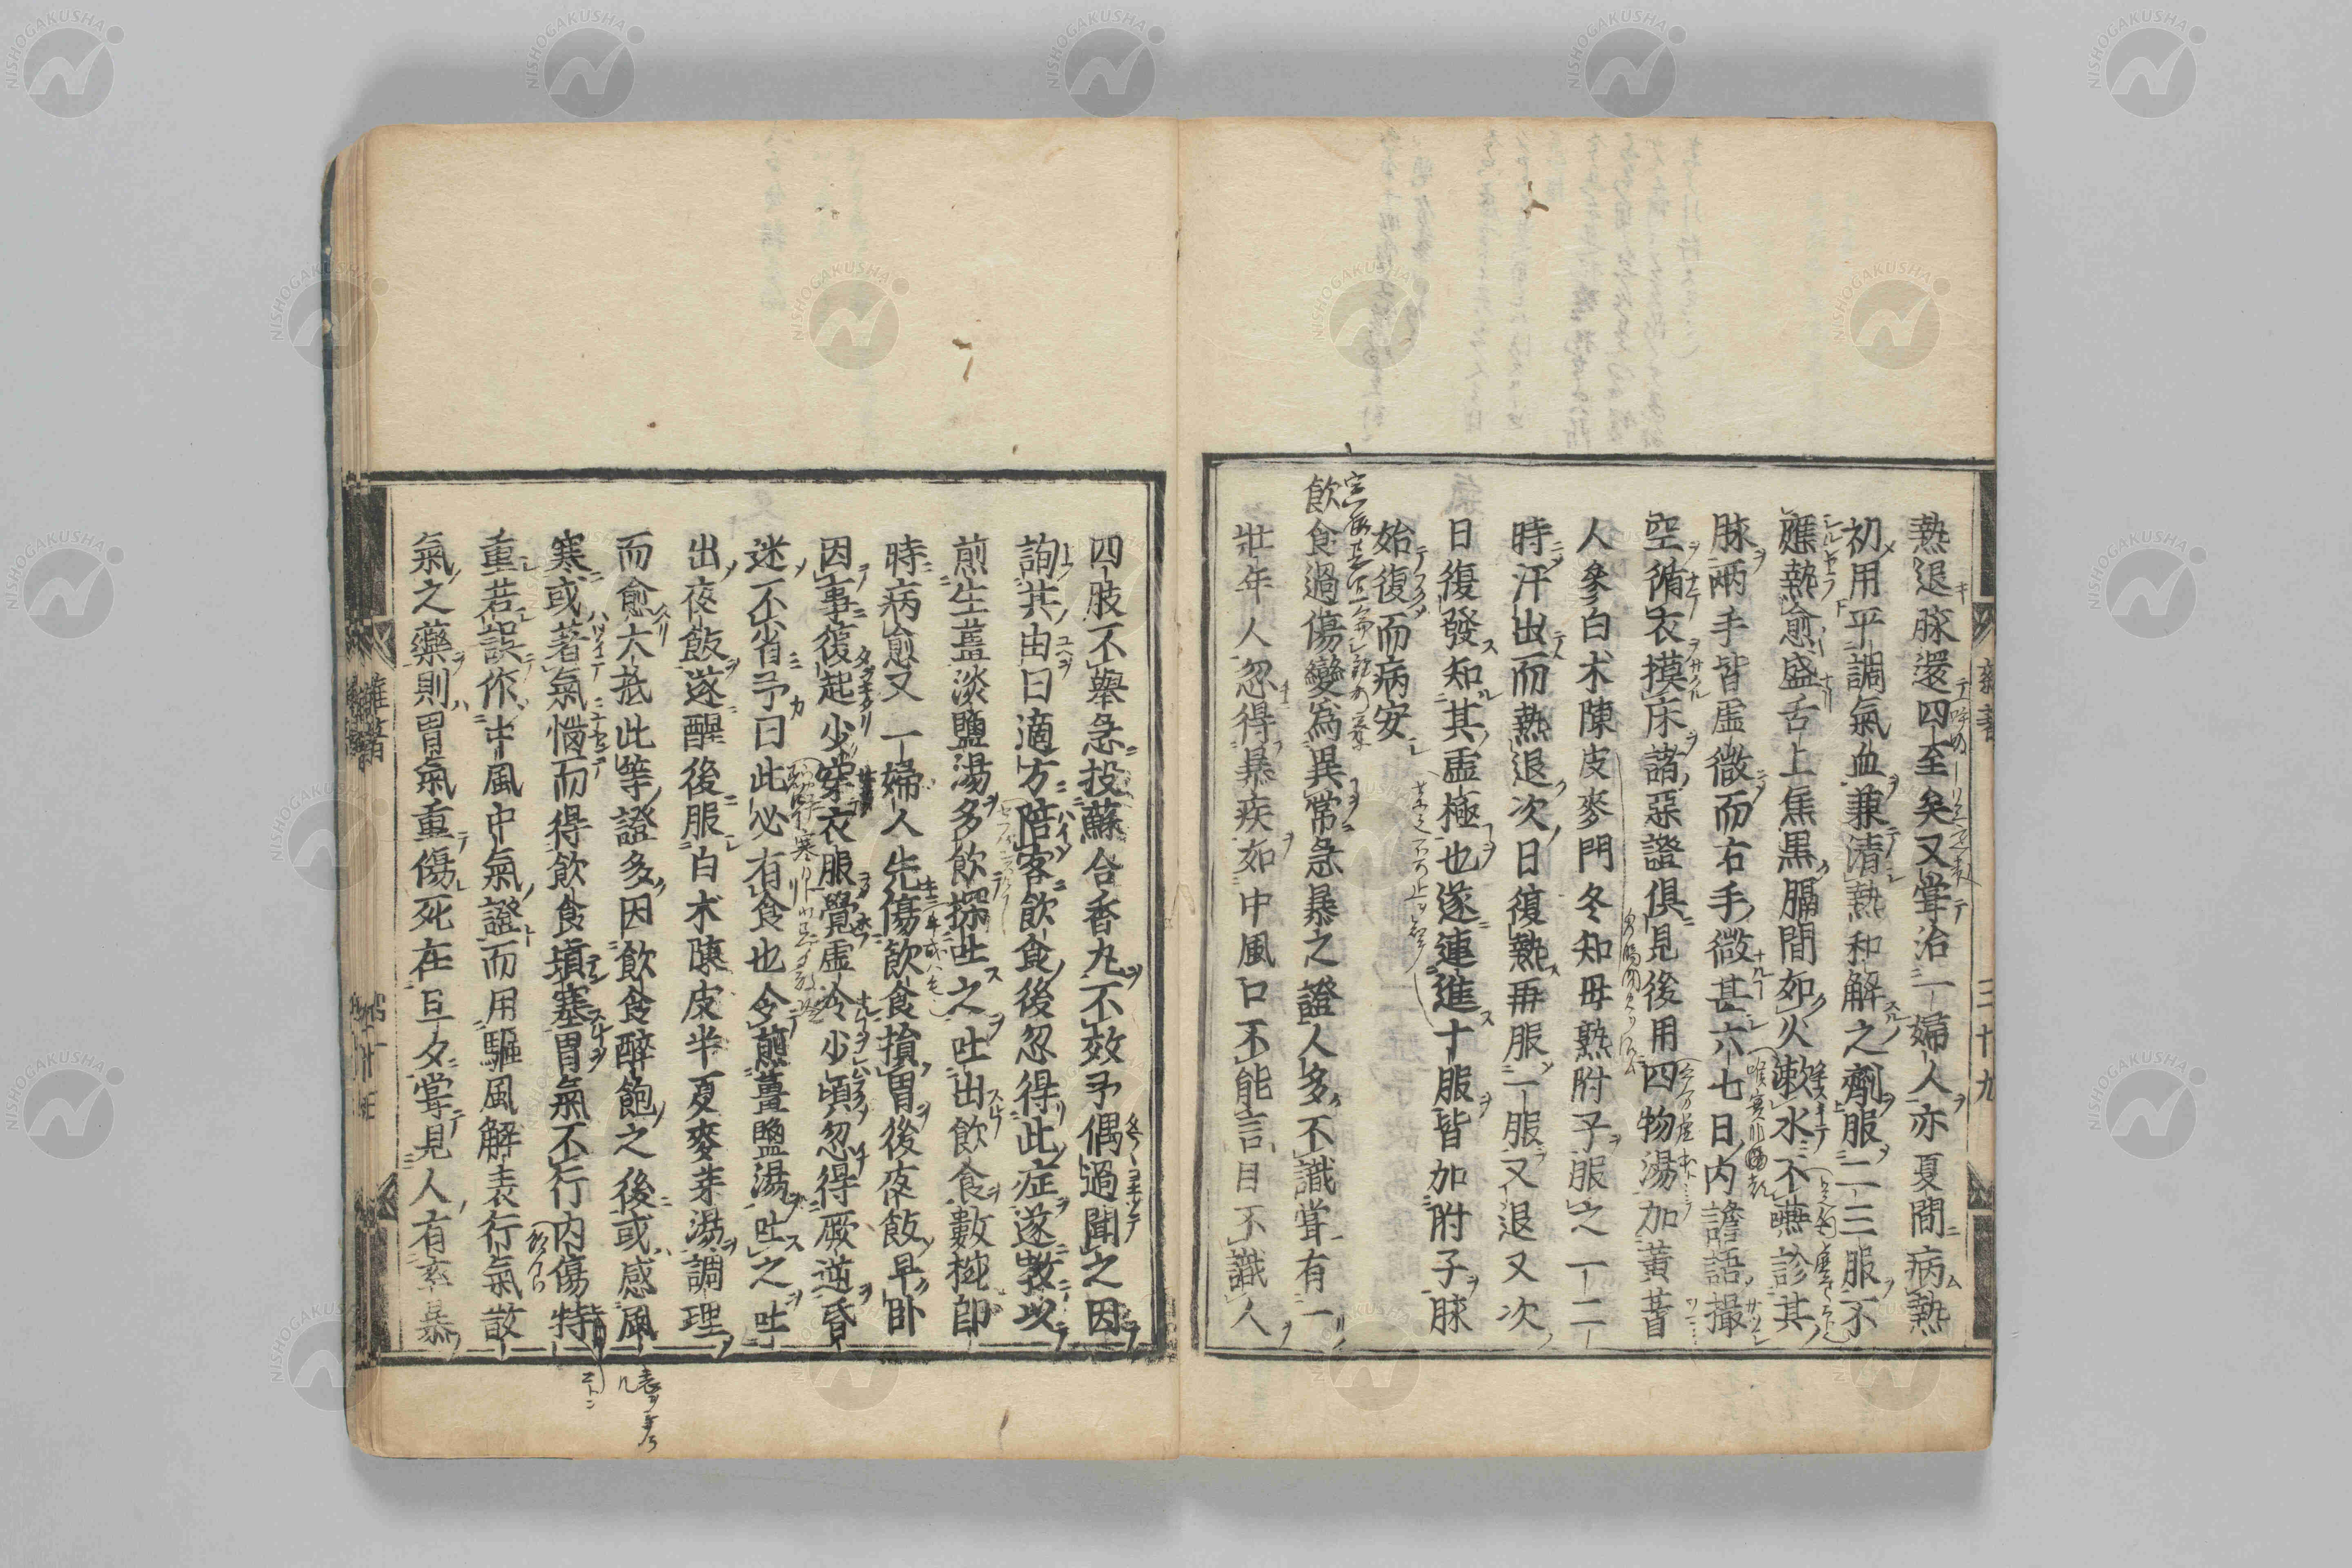 熱退脉還四至矣又甞治一婦人亦夏間病熱
初用平調氣血兼清熱和解之劑服二三服不
應熱愈盛舌上焦黒膈間如火漱水不嚥診其
脉兩手皆虚微而右手微甚六七日内譫語撮
空循衣摸床諸惡證俱見後用四物湯加黄蓍
人參白朮陳皮麥門冬知母熟附子服之一二
時汗出而熱退次日復熱再服一服又退又次
日復發知其虚極也遂連進十服皆加附子脉
始復而病安
飲食過傷變爲異常急暴之證人多不識甞有一
壯年人忽得暴疾如中風口不能言目不識人
三十九
四肢不舉急投蘇合香丸不效予偶過聞之因
詢其由曰適方陪客飲食後忽得此症遂教以
煎生薑淡鹽湯多飲探吐之吐出飲食數椀即
時病愈又一婦人先傷飲食損胃後夜飯早卧
因事復起少穿衣服覺虚冷少頃忽得厥逆昏
迷不省予曰此必有食也令煎薑鹽湯吐之吐
出夜飯遂醒後服白朮陳皮半夏麥芽湯調理
而愈大抵此等證多因飲食醉飽之後或感風
寒或著氣惱而得飲食填塞胃氣不行内傷特
重若誤作中風中氣證而用驅風解表行氣散
氣之藥則胃氣重傷死在旦夕甞見人有素暴
NISHOGAKUSHA